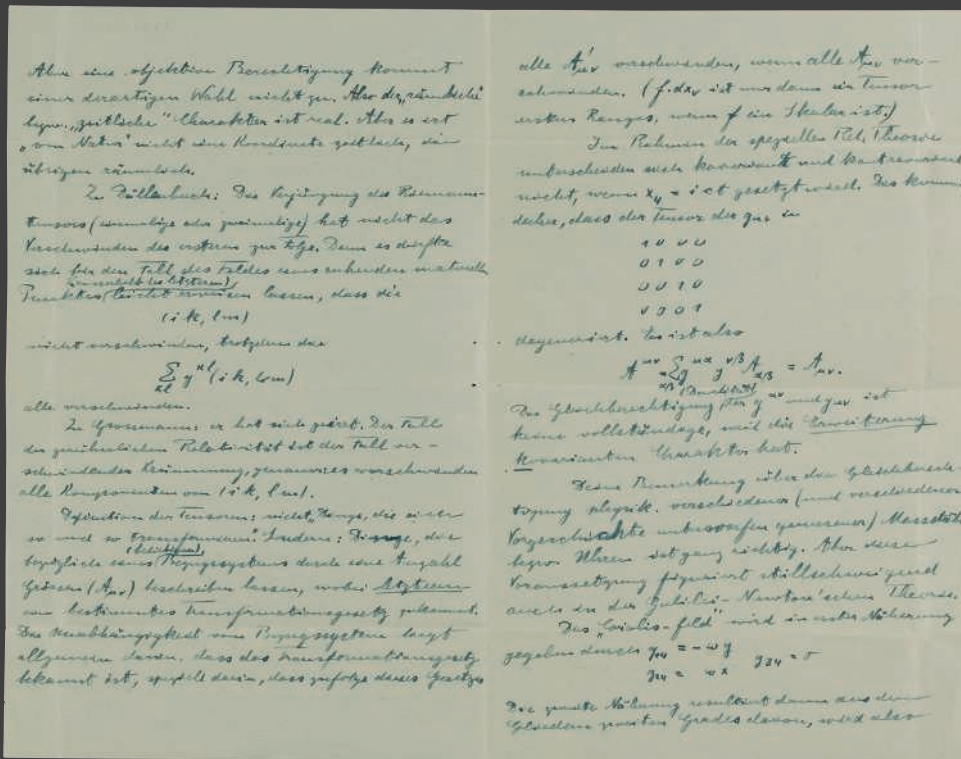 Aber eine objektive Berechtigung kommt
einer derartigen Wahl nicht zu. Also der „räumliche"
bezw. „zeitliche" Charakter ist real. Aber es ist
„von Natur" nicht eine Koordinate zeitlich, die
übrigen räumlich.
Zu Düllenbach: Die Verjüngung des Riemann-
tensors (einmalige oder zweimalige) hat nicht das
Verschwinden des ersteren zur Folge. Denn es dürfte
sich für den Fall des Feldes eines ruhenden materiellen
(ausserhalb des letzteren)
Punktes leicht erweisen lassen, dass die
(ik, lm)
nicht verschwinden, trotzdem die
∑ g^{κl} (ik, lm)
κl
alle verschwinden.
Zu Grossmann: er hat sich geirrt. Der Fall
der gewöhnlichen Relativität ist der Fall ver-
schwindender Krümmung, genauer: es verschwinden
alle Komponenten von (ik, lm).
Definition der Tensoren: nicht „Dinge, die sich
so und so transformieren". Sondern: Dinge, die
(beliebigen)
bezüglich eines Bezugssystems durch eine Anzahl
Grössen (Aμν) beschreiben lassen, wobei letzteren
ein bestimmtes Transformationsgesetz zukommt.
Die Unabhängigkeit vom Bezugssystem liegt
allgemein darin, dass das Transformationsgesetz
bekannt ist, speziell darin, dass zufolge dieses Gesetzes
alle A'μν verschwinden, wenn alle Aμν ver-
schwinden. (f·dxν ist nur dann ein Tensor
ersten Ranges, wenn f ein Skalar ist.)
Im Rahmen der speziellen Rel. Theorie
unterscheiden sich kovariant und kontravariant
nicht, wenn x₄ = ict gesetzt wird. Das kommt
daher, dass der Tensor der gμν in
1 0 0 0
0 1 0 0
0 0 1 0
0 0 0 1
degeneriert. Es ist also
A^{μν} = ∑ g^{μα} g^{νβ} Aαβ = Aμν.
αβ
(Dualität)
Die Gleichberechtigung der g^{μν} und gμν ist
keine vollständige, weil die Erweiterung
kovarianten Charakter hat.
Deine Bemerkung über den Gleichberech-
tigung physik. verschiedener (und verschiedener
Vorgeschichte unterworfen gewesener) Massstäbe
bezw. Uhren ist ganz richtig. Aber diese
Voraussetzung figuriert stillschweigend
auch in der Galilei-Newton'schen Theorie.
Das „Coriolis-Feld" wird in erster Näherung
gegeben durch g₁₄ = -ωy
g₂₄ = ωx g₃₄ = 0
Die zweite Näherung resultiert dann aus den
Gliedern zweiten Grades davon, wird also